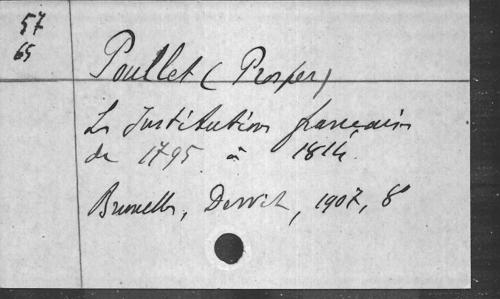 57
65
Poullet (Prosper)
Les Institutions françaises
de 1795 à 1814.
Bruxelles, Dewit, 1907, 8°